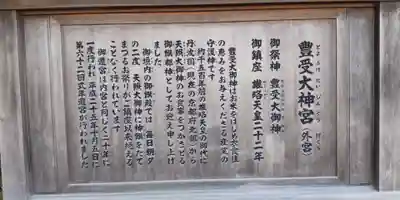 とようけだいじんぐう　げくう
豊受大神宮（外宮）
御祭神　豊受大御神
御鎮座　雄略天皇二十二年
豊受大御神はお米をはじめ衣食住
の恵みをお与えくださる産業の
守護神です
約千五百年前の雄略天皇の御代に
丹波国（現在の京都府北部）から
天照大御神のお食事をつかさどる
御饌都神としてお迎え申し上げ
ました
御垣内の御饌殿では　毎日朝夕
の二度　天照大御神に神饌をたて
まつるお祭りがご鎮座以来絶える
ことなく行われています
御遷宮は内宮と同じく二十年に
一度行われ　平成二十五年十月五日に
第六十二回式年遷宮が行われました